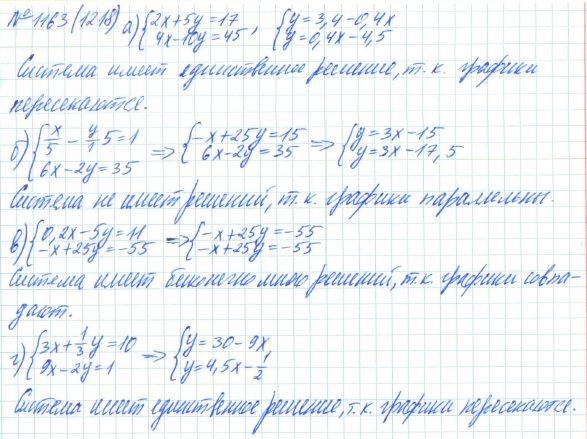 № 1163 (1218) а) {2x+5y=17, {y=3,4-0,4x
4x-10y=45 y=0,4x-4,5
Система имеет единственное решение, т. к. графики
пересекаются.
б) {x/5 - y/1 5=1 => {-x+25y=15 => {y=3x-15
6x-2y=35 6x-2y=35 y=3x-17,5
Система не имеет решений, т. к. графики параллельны.
в) {0,2x-5y=11 => {-x+25y=-55
-x+25y=-55 -x+25y=-55
Система имеет бесконечно много решений, т.к. графики совпа-
дают.
г) {3x+1/3y=10 => {y=30-9x,
9x-2y=1 y=4,5x-1/2
Система имеет единственное решение, т. к. графики пересекаются.